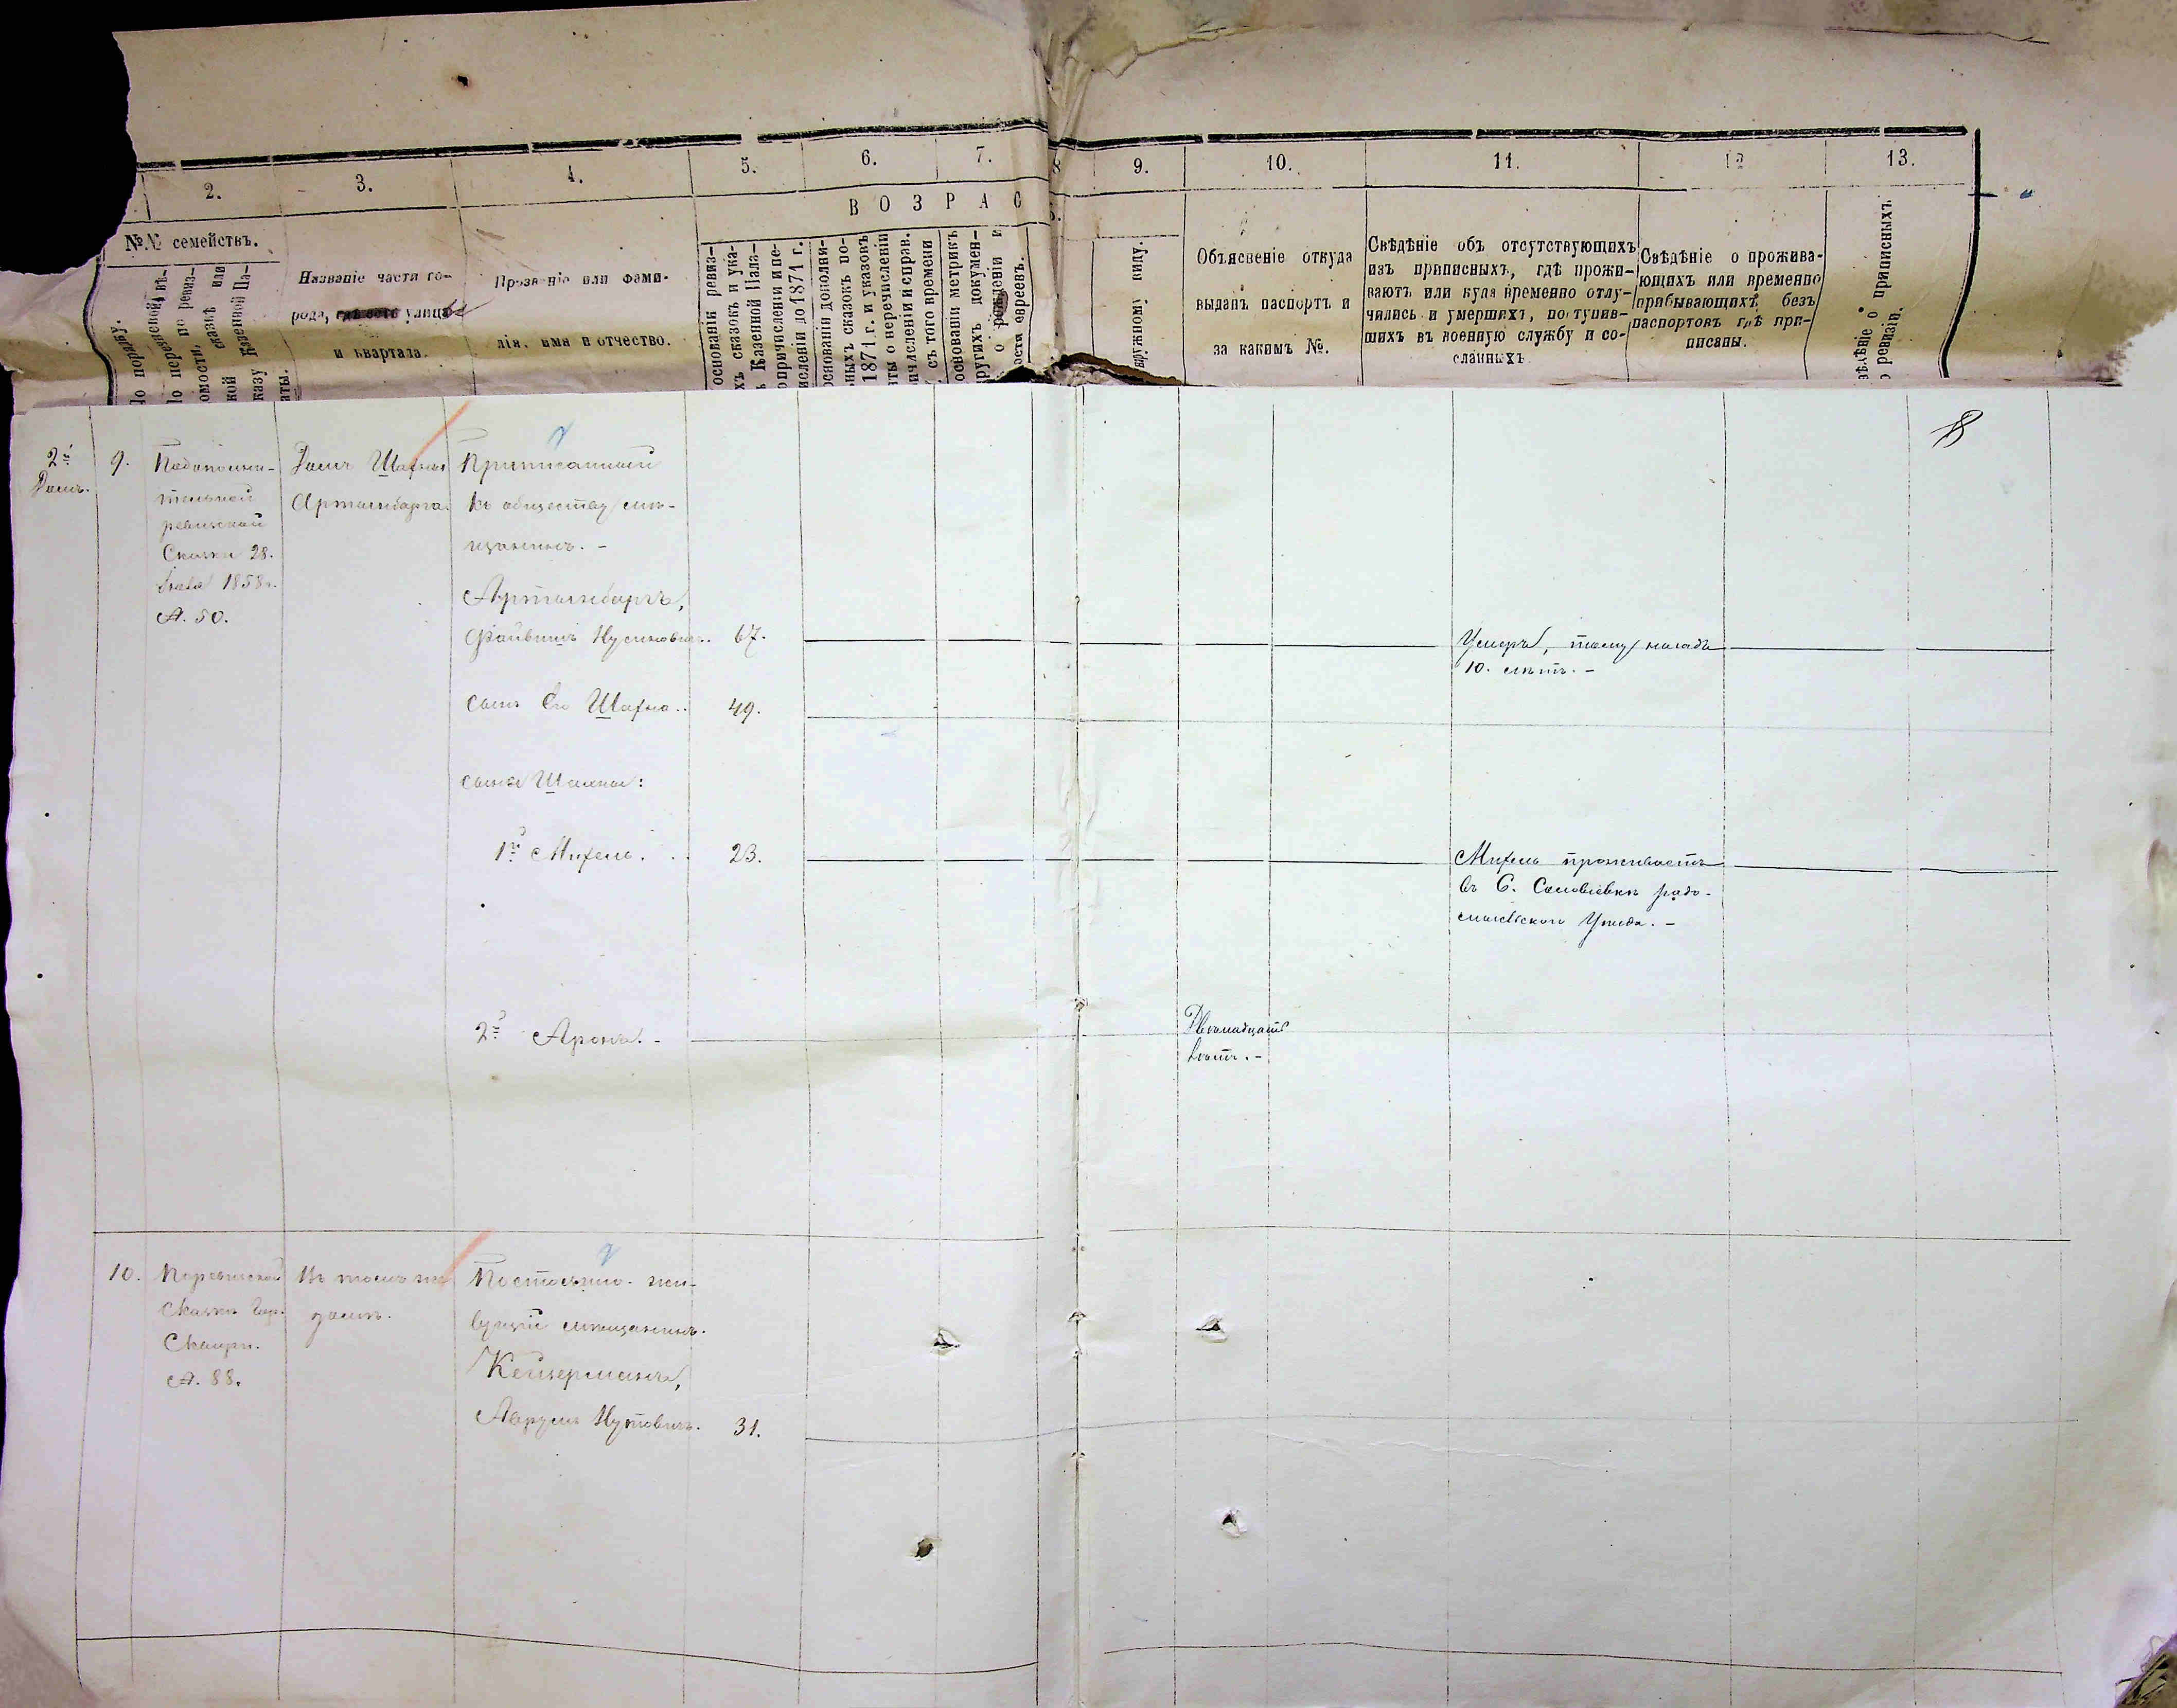 2. 3. 4. 5. 6. 7. 8 9. 10. 11. 12 13.
ВОЗРАС
№№ семействъ.
По порядку.
Названіе части го-
рода, улица
и квартала.
Прозваніе или фами-
лія, имя и отчество.
основаніи ревиз-
хъ сказокъ и ука-
Казенной Пала-
опричисленіи и пе-
исленіи до 1871 г.
основаніи дополни-
ныхъ сказокъ по-
1871 г. и указовъ
ты о перечисленіи
ичисленіи и справ.
съ того времени
основаніи метрикъ
ругихъ докумен-
о рожденіи и
ости евреевъ.
наружному виду.
Объясненіе откуда
выданъ паспортъ и
за какимъ №.
Свѣдѣніе объ отсутствующихъ
изъ приписныхъ, гдѣ прожи-
ваютъ или куда временно отлу-
чились и умершихъ, поступив-
шихъ въ военную службу и со-
сланныхъ
Свѣдѣніе о прожива-
ющихъ или временно
прибывающихъ безъ
паспортовъ гдѣ при-
писаны.
о приписныхъ
ревизіи.
8
2й
Домъ.
9.
Подополни-
тельной
ревизской
Сказки 28.
1858 г.
№. 50.
Домъ
Артылибарга.
Приписанный
къ обществу мѣ-
щанинъ. -
Артылибаргъ,
Файвишъ Нусиновичъ. 67.
Умеръ, тому назадъ
10. лѣтъ. -
сынъ Его 49.
сыновья :
1й Михель. 23.
Михель проживаетъ
въ С. Соловіевкѣ радо-
мысльскаго Уѣзда. -
2й Аронъ. -
Двѣнадцать
лѣтъ. -
10.
Поревизской
Сказкѣ
№. 88.
Въ томъ же
домѣ.
Постоянно жи-
вущій мѣщанинъ.
Кейзерманъ,
Аврумъ Нутовичъ. 31.